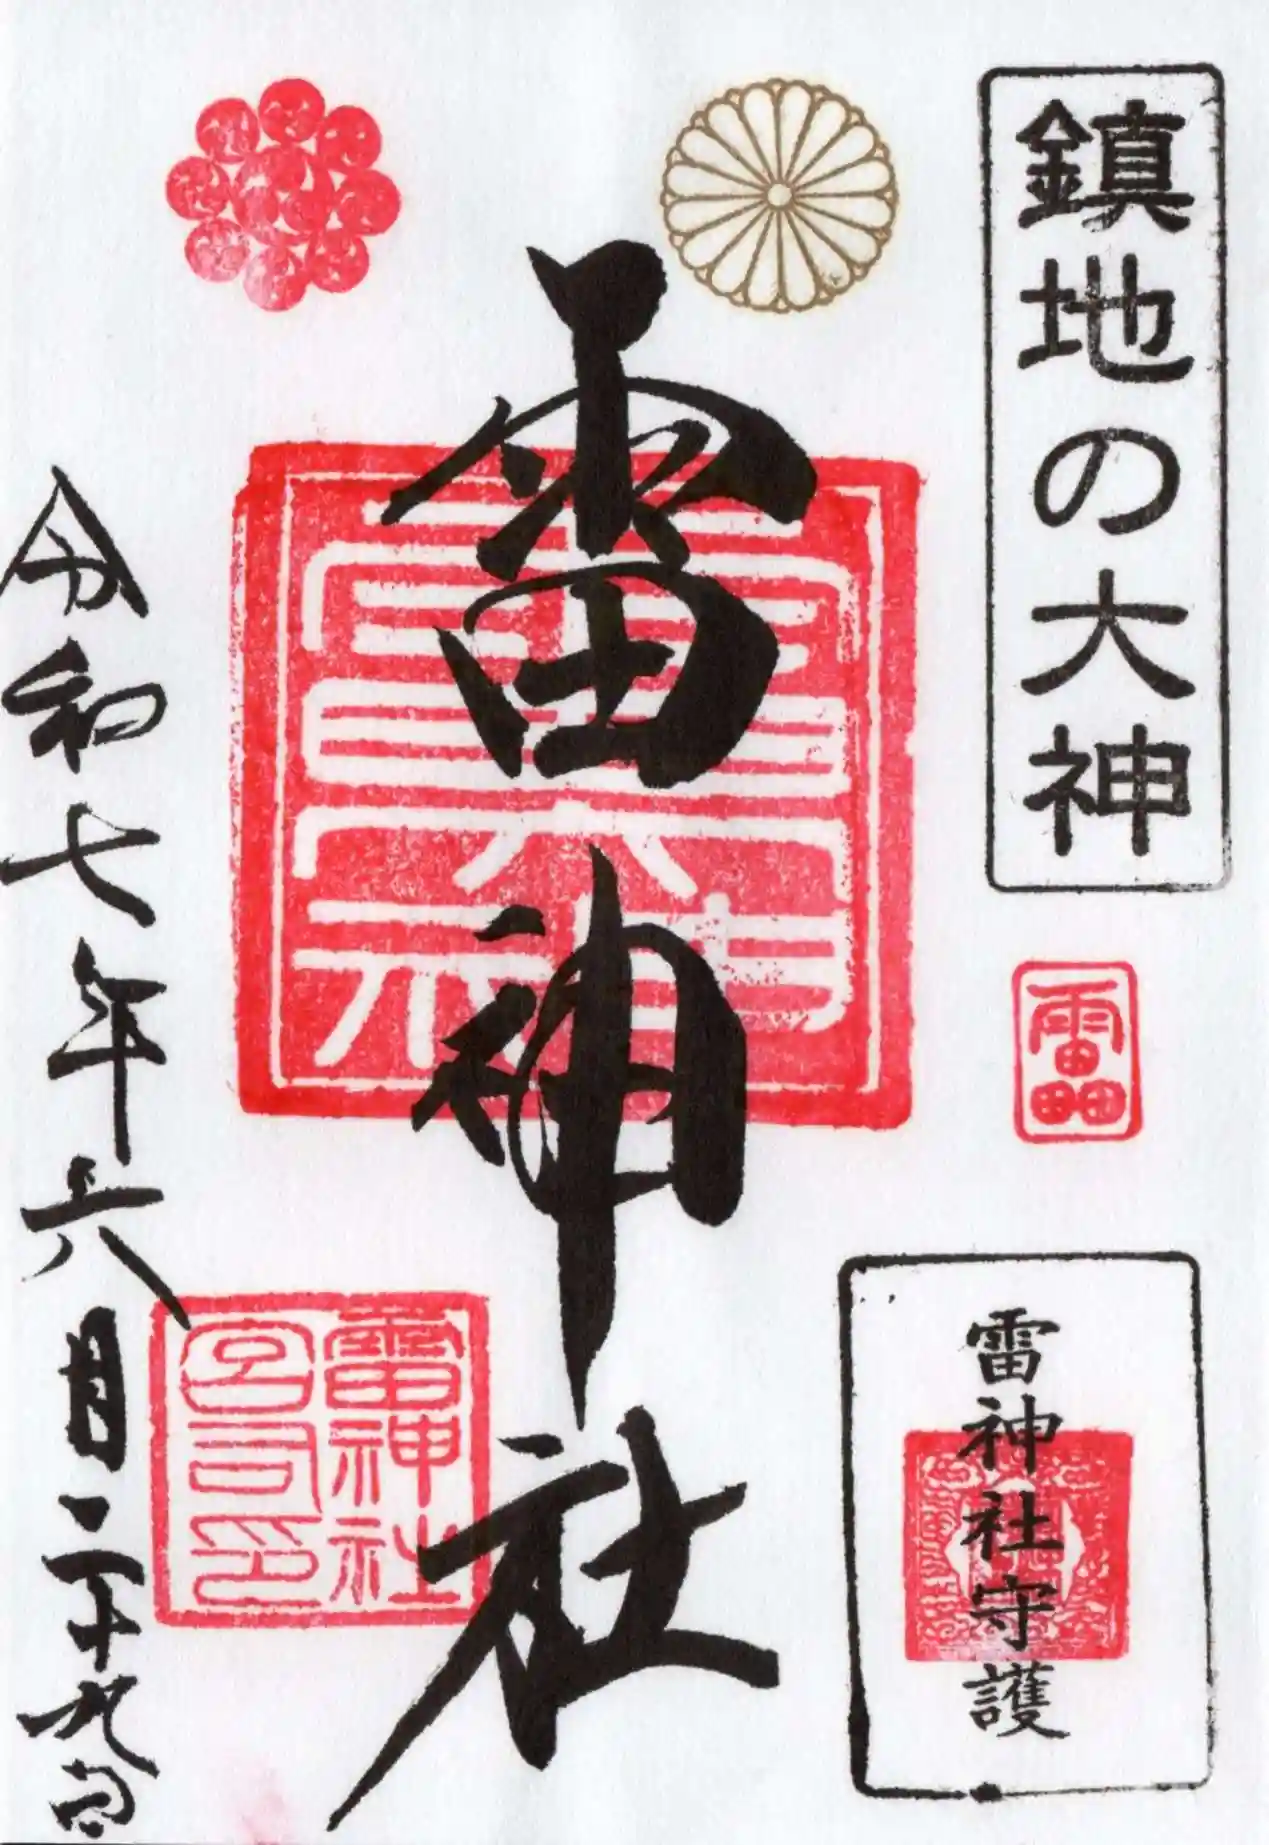 鎮地の大神
雷
雷神社守護
雷神社
雷神社
宮司印
令和七年六月二十九日